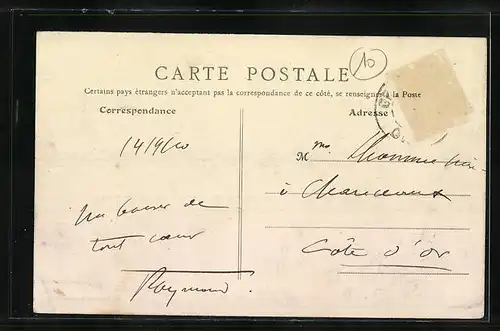 10
CARTE POSTALE
Certains pays étrangers n'acceptant pas la correspondance de ce côté, se renseigner à la Poste
Correspondance
Adresse
14/9/10
un baiser de
tout cœur
Raymond.
M
à
Côte d'Or